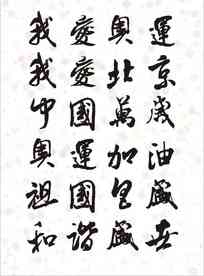 我愛奧運
我愛北京
中國萬歲
奧運加油
祖國昌盛
和諧盛世